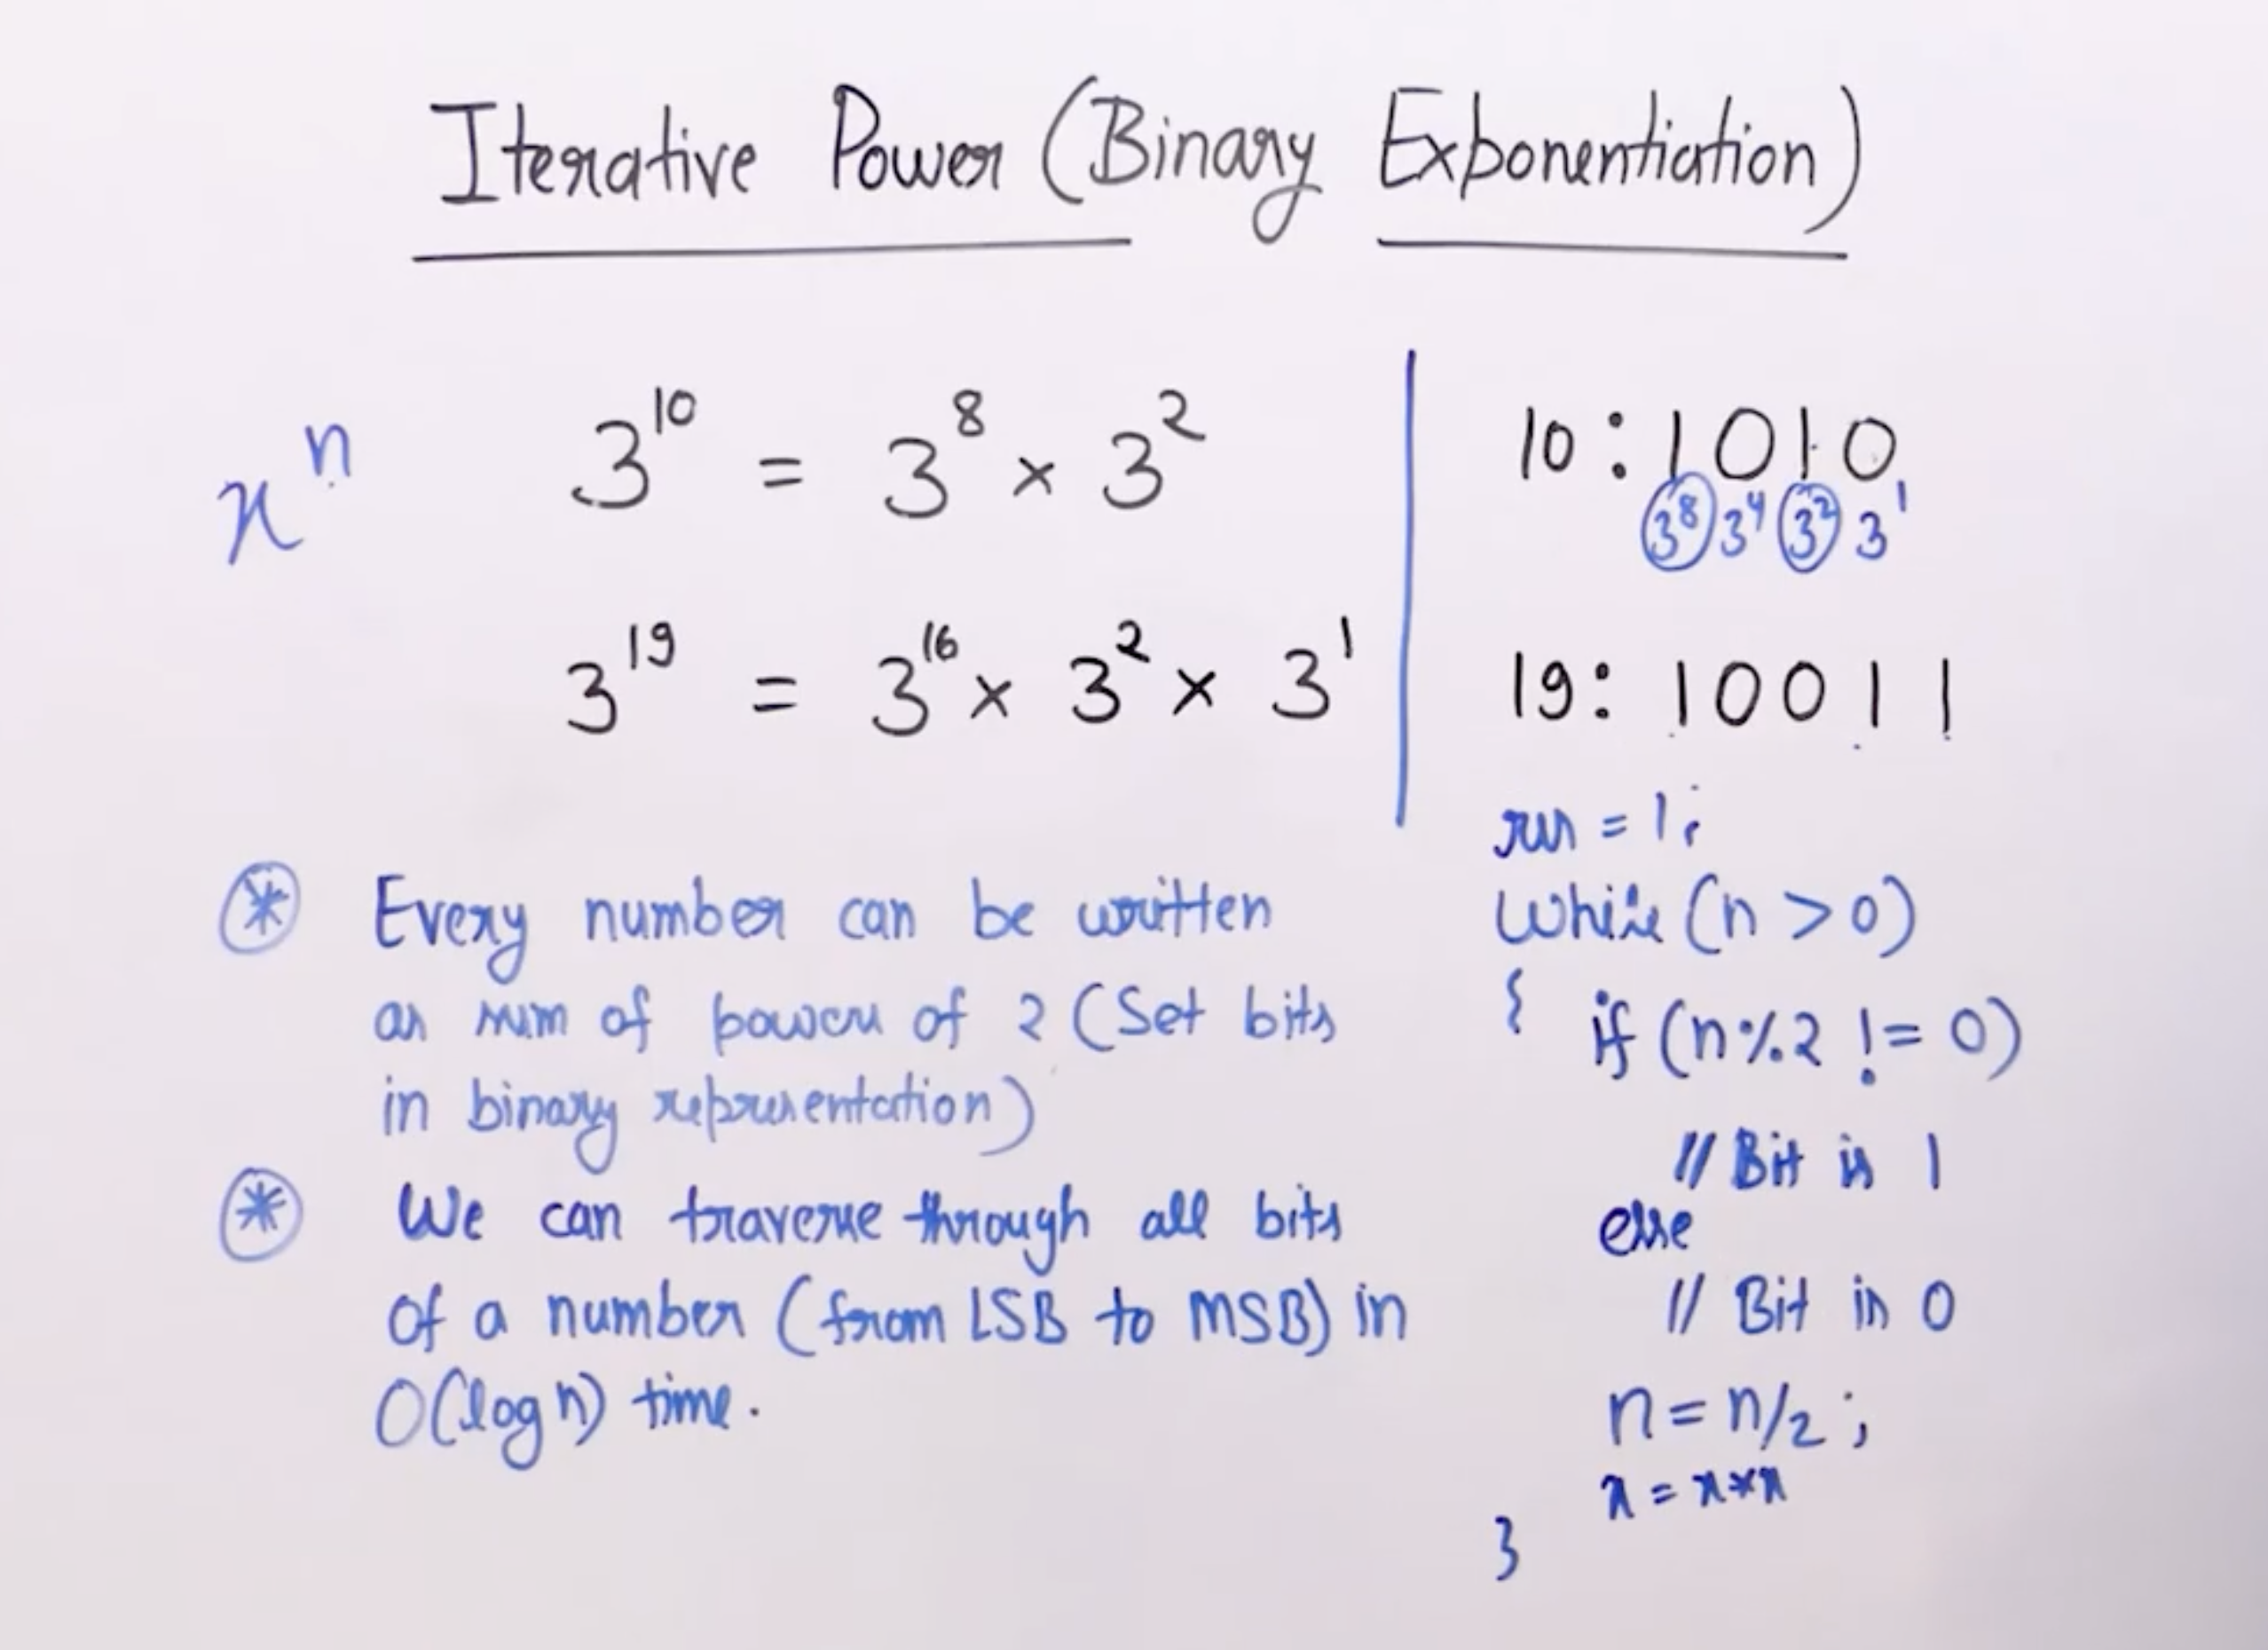 Iterative Power (Binary Exponentiation)
xⁿ
3¹⁰ = 3⁸ × 3²
3¹⁹ = 3¹⁶ × 3² × 3¹
10 : 1010
3⁸ 3⁴ 3² 3¹
19: 10011
* Every number can be written
as sum of powers of 2 (Set bits
in binary representation)
* We can traverse through all bits
of a number (from LSB to MSB) in
O(log n) time.
res = 1;
while (n > 0)
{ if (n%2 != 0)
// Bit is 1
else
// Bit is 0
n = n/2 ;
x = x*x
}